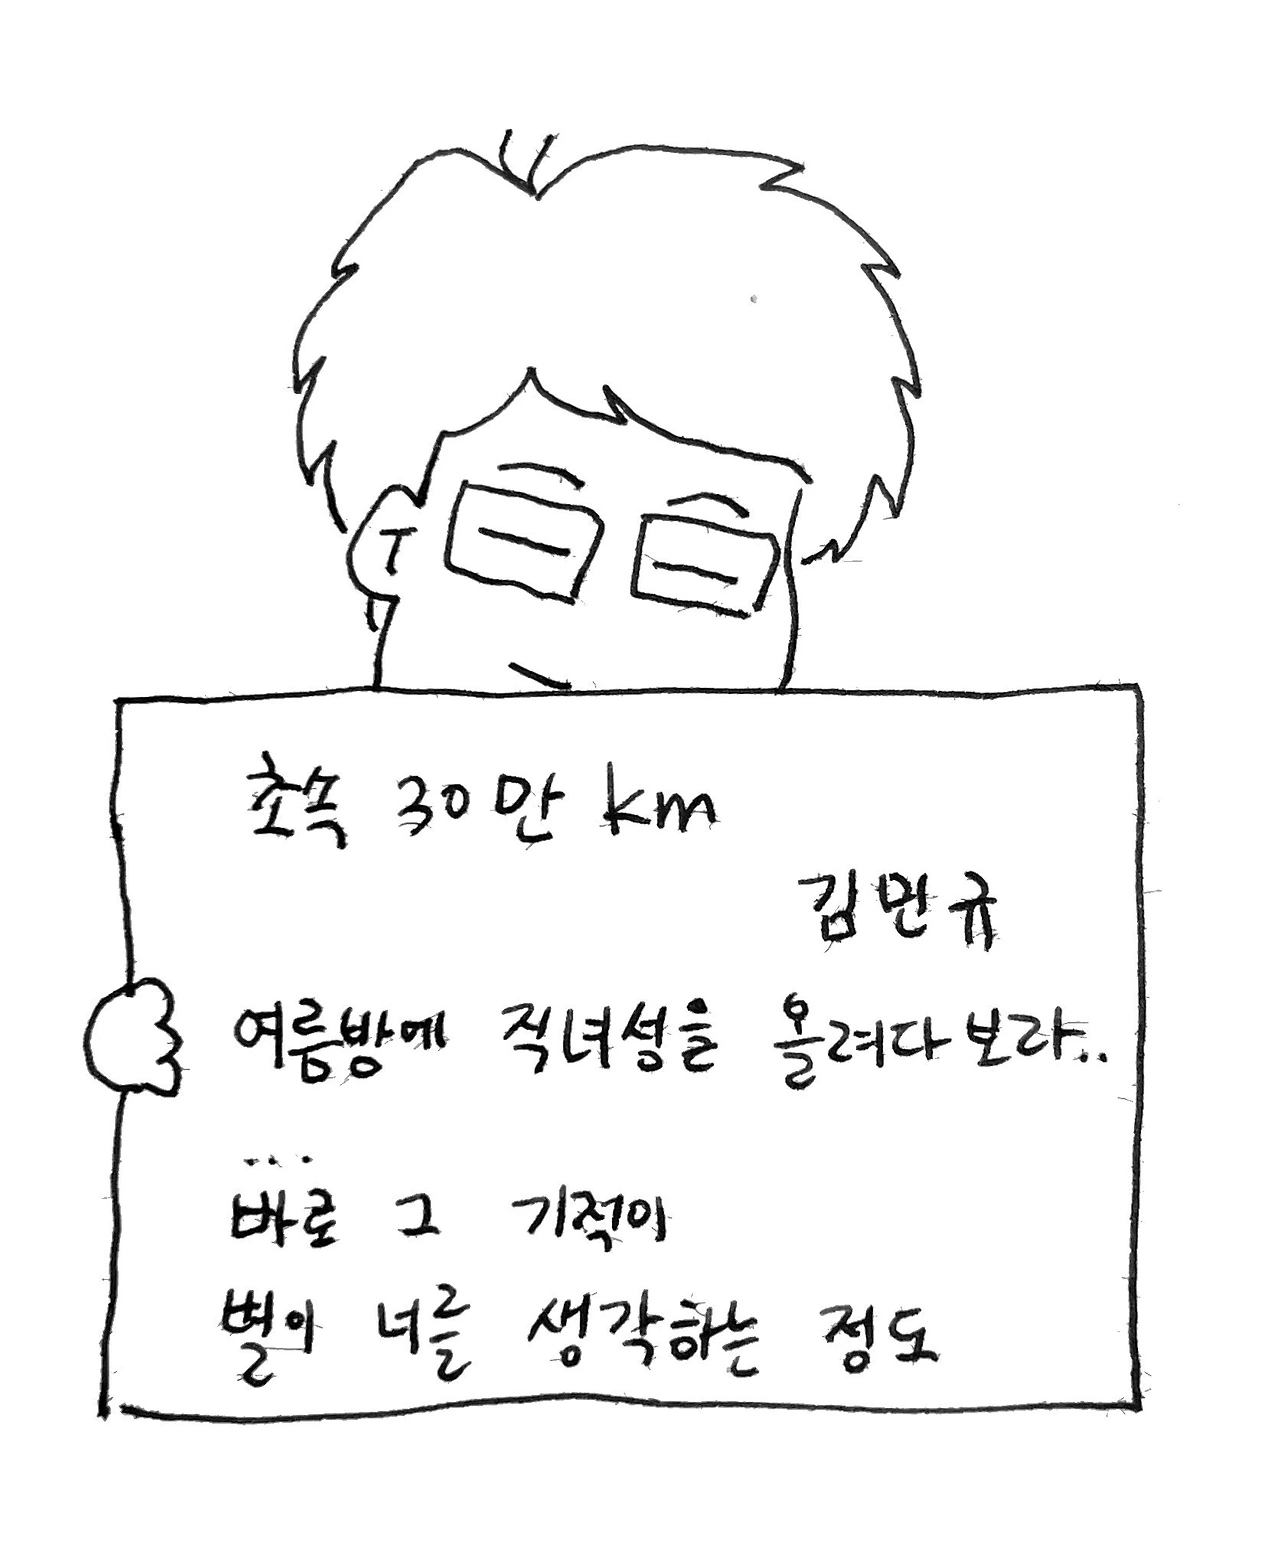 초속 30만 km
김민규
여름밤에 직녀성을 올려다보라..
...
바로 그 기적이
별이 너를 생각하는 정도